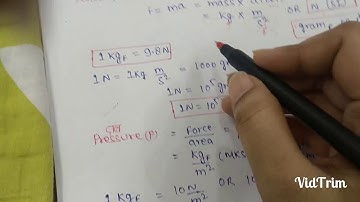 F = ma = mass x
= kg x m/s² OR N (SI)
gram f
1 kgf = 9.8N
1N = 1kg m/s² = 1000 gr
1N = 10⁵ gr
1N = 10⁵
Pressure (P) = Force/area =
= kgf/m² (MKS
1 kgf = 10N/m² OR 10
VidTrim